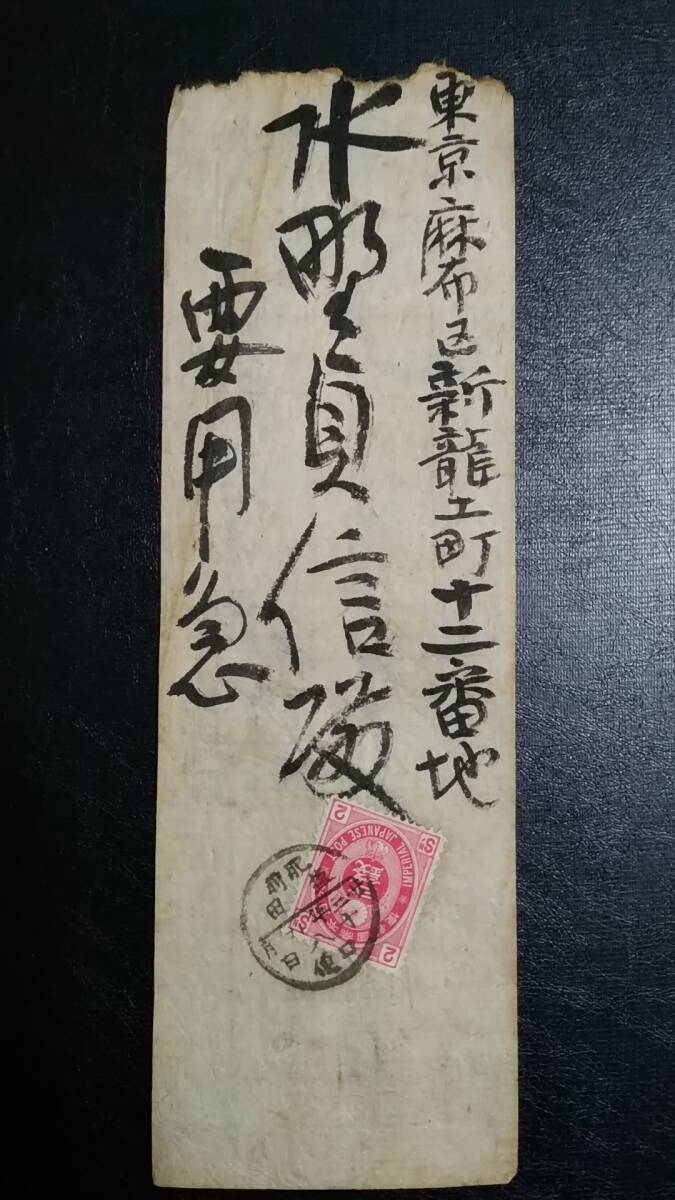 東京麻布区新龍土町十二番地
水野貞信殿
要用急
2 Sn
IMPERIAL JAPANESE POST
2